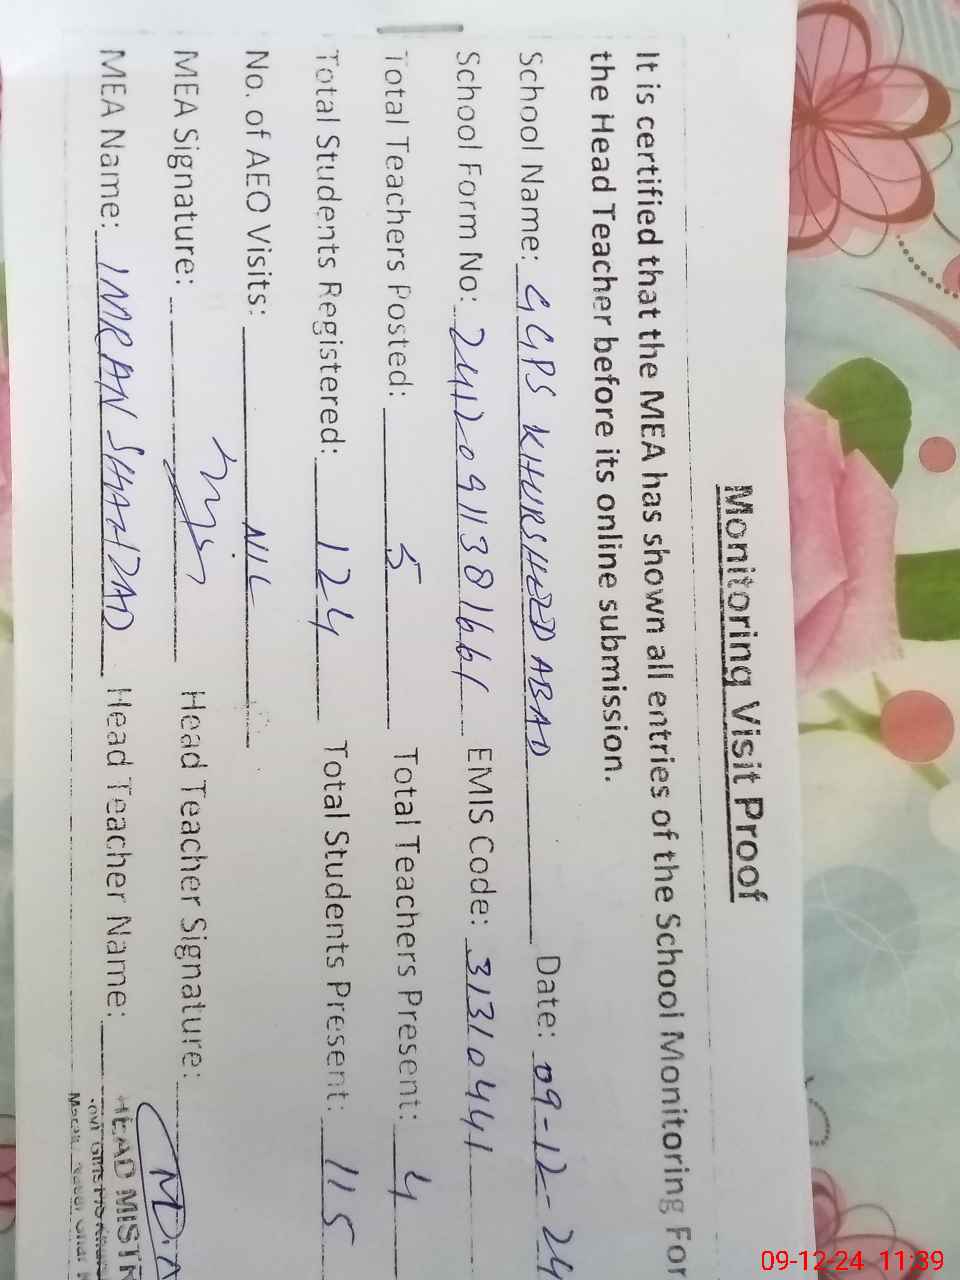 Monitoring Visit Proof
It is certified that the MEA has shown all entries of the School Monitoring For
the Head Teacher before its online submission.
School Name: GGPS KHURSHEED ABAD Date: 09-12-24
School Form No: 24120911381661 EMIS Code: 31310441
Total Teachers Posted: 5 Total Teachers Present: 4
Total Students Registered: 124 Total Students Present: 115
No. of AEO Visits: NIL
MEA Signature: Head Teacher Signature:
MEA Name: IMRAN SHAHZAD Head Teacher Name:
HEAD MISTR
09-12-24 11:39